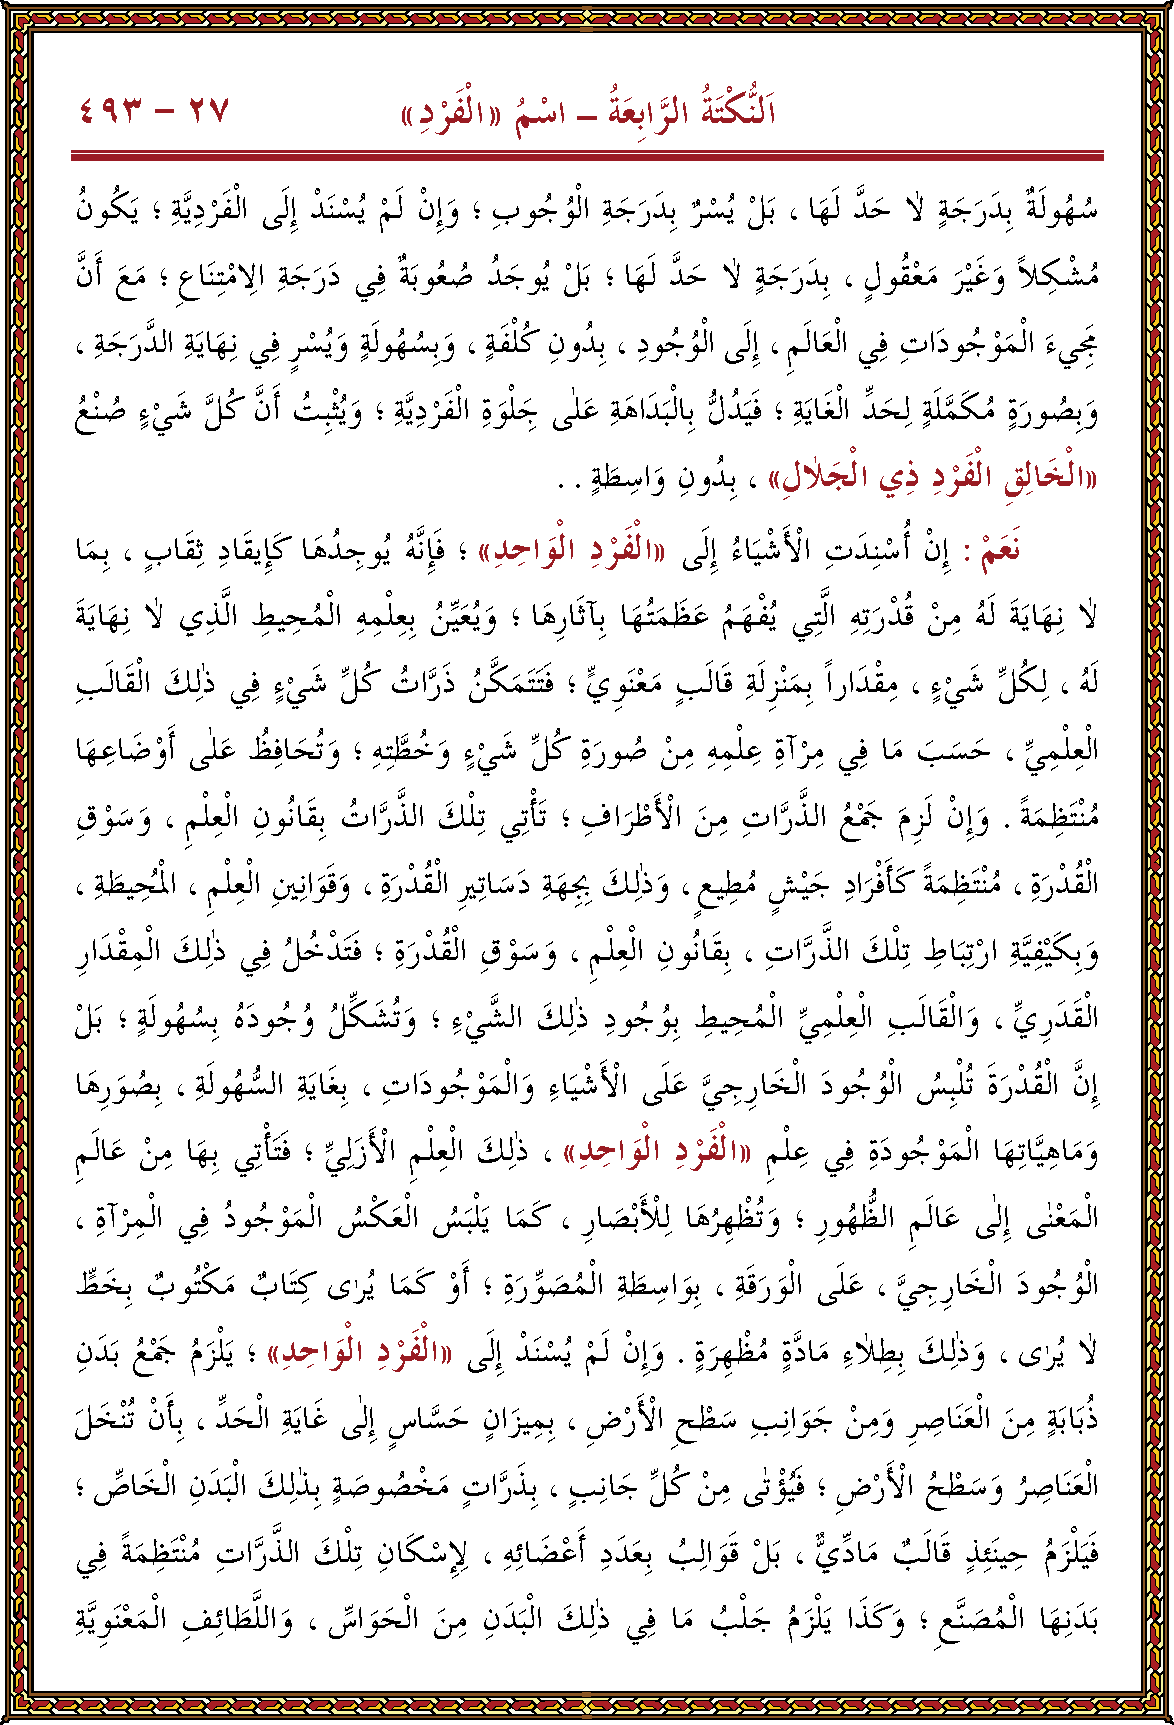 اَلنُّكْتَةُ الرَّابِعَةُ – اسْمُ «الْفَرْدِ» ٢٧ – ٤٩٣
سُهُولَةٌ بِدَرَجَةٍ لاٰ حَدَّ لَهَا ، بَلْ يُسْرٌ بِدَرَجَةِ الْوُجُوبِ ؛ وَإِنْ لَمْ يُسْنَدْ إِلَى الْفَرْدِيَّةِ ؛ يَكُونُ
مُشْكِلاً وَغَيْرَ مَعْقُولٍ ، بِدَرَجَةٍ لاٰ حَدَّ لَهَا ؛ بَلْ يُوجَدُ صُعُوبَةٌ فِي دَرَجَةِ الِامْتِنَاعِ ؛ مَعَ أَنَّ
مَجِيءَ الْمَوْجُودَاتِ فِي الْعَالَمِ ، إِلَى الْوُجُودِ ، بِدُونِ كُلْفَةٍ ، وَبِسُهُولَةٍ وَيُسْرٍ فِي نِهَايَةِ الدَّرَجَةِ ،
وَبِصُورَةٍ مُكَمَّلَةٍ لِحَدِّ الْغَايَةِ ؛ فَيَدُلُّ بِالْبَدَاهَةِ عَلٰى جِلْوَةِ الْفَرْدِيَّةِ ؛ وَيُثْبِتُ أَنَّ كُلَّ شَيْءٍ صُنْعُ
«الْخَالِقِ الْفَرْدِ ذِي الْجَلاٰلِ» ، بِدُونِ وَاسِطَةٍ . .
نَعَمْ : إِنْ أُسْنِدَتِ الْأَشْيَاءُ إِلَى «الْفَرْدِ الْوَاحِدِ» ؛ فَإِنَّهُ يُوجِدُهَا كَإِيقَادِ ثِقَابٍ ، بِمَا
لاٰ نِهَايَةَ لَهُ مِنْ قُدْرَتِهِ الَّتِي يُفْهَمُ عَظَمَتُهَا بِآثَارِهَا ؛ وَيُعَيِّنُ بِعِلْمِهِ الْمُحِيطِ الَّذِي لاٰ نِهَايَةَ
لَهُ ، لِكُلِّ شَيْءٍ ، مِقْدَاراً بِمَنْزِلَةِ قَالَبٍ مَعْنَوِيٍّ ؛ فَتَتَمَكَّنُ ذَرَّاتُ كُلِّ شَيْءٍ فِي ذٰلِكَ الْقَالَبِ
الْعِلْمِيِّ ، حَسَبَ مَا فِي مِرْآةِ عِلْمِهِ مِنْ صُورَةِ كُلِّ شَيْءٍ وَخُطَّتِهِ ؛ وَتُحَافِظُ عَلٰى أَوْضَاعِهَا
مُنْتَظِمَةً . وَإِنْ لَزِمَ جَمْعُ الذَّرَّاتِ مِنَ الْأَطْرَافِ ؛ تَأْتِي تِلْكَ الذَّرَّاتُ بِقَانُونِ الْعِلْمِ ، وَسَوْقِ
الْقُدْرَةِ ، مُنْتَظِمَةً كَأَفْرَادِ جَيْشٍ مُطِيعٍ ، وَذٰلِكَ بِجِهَةِ دَسَاتِيرِ الْقُدْرَةِ ، وَقَوَانِينِ الْعِلْمِ ، الْمُحِيطَةِ ،
وَبِكَيْفِيَّةِ ارْتِبَاطِ تِلْكَ الذَّرَّاتِ ، بِقَانُونِ الْعِلْمِ ، وَسَوْقِ الْقُدْرَةِ ؛ فَتَدْخُلُ فِي ذٰلِكَ الْمِقْدَارِ
الْقَدَرِيِّ ، وَالْقَالَبِ الْعِلْمِيِّ الْمُحِيطِ بِوُجُودِ ذٰلِكَ الشَّيْءِ ؛ وَتُشَكِّلُ وُجُودَهُ بِسُهُولَةٍ ؛ بَلْ
إِنَّ الْقُدْرَةَ تُلْبِسُ الْوُجُودَ الْخَارِجِيَّ عَلَى الْأَشْيَاءِ وَالْمَوْجُودَاتِ ، بِغَايَةِ السُّهُولَةِ ، بِصُوَرِهَا
وَمَاهِيَّاتِهَا الْمَوْجُودَةِ فِي عِلْمِ «الْفَرْدِ الْوَاحِدِ» ، ذٰلِكَ الْعِلْمِ الْأَزَلِيِّ ؛ فَتَأْتِي بِهَا مِنْ عَالَمِ
الْمَعْنٰى إِلٰى عَالَمِ الظُّهُورِ ؛ وَتُظْهِرُهَا لِلْأَبْصَارِ ، كَمَا يَلْبَسُ الْعَكْسُ الْمَوْجُودُ فِي الْمِرْآةِ ،
الْوُجُودَ الْخَارِجِيَّ ، عَلَى الْوَرَقَةِ ، بِوَاسِطَةِ الْمُصَوِّرَةِ ؛ أَوْ كَمَا يُرٰى كِتَابٌ مَكْتُوبٌ بِخَطٍّ
لاٰ يُرٰى ، وَذٰلِكَ بِطِلاٰءِ مَادَّةٍ مُظْهِرَةٍ . وَإِنْ لَمْ يُسْنَدْ إِلَى «الْفَرْدِ الْوَاحِدِ» ؛ يَلْزَمُ جَمْعُ بَدَنِ
ذُبَابَةٍ مِنَ الْعَنَاصِرِ وَمِنْ جَوَانِبِ سَطْحِ الْأَرْضِ ، بِمِيزَانٍ حَسَّاسٍ إِلٰى غَايَةِ الْحَدِّ ، بِأَنْ تُنْخَلَ
الْعَنَاصِرُ وَسَطْحُ الْأَرْضِ ؛ فَيُؤْتٰى مِنْ كُلِّ جَانِبٍ ، بِذَرَّاتٍ مَخْصُوصَةٍ بِذٰلِكَ الْبَدَنِ الْخَاصِّ ؛
فَيَلْزَمُ حِينَئِذٍ قَالَبٌ مَادِّيٌّ ، بَلْ قَوَالِبُ بِعَدَدِ أَعْضَائِهِ ، لِإِسْكَانِ تِلْكَ الذَّرَّاتِ مُنْتَظِمَةً فِي
بَدَنِهَا الْمُصَنَّعِ ؛ وَكَذَا يَلْزَمُ جَلْبُ مَا فِي ذٰلِكَ الْبَدَنِ مِنَ الْحَوَاسِّ ، وَاللَّطَائِفِ الْمَعْنَوِيَّةِ